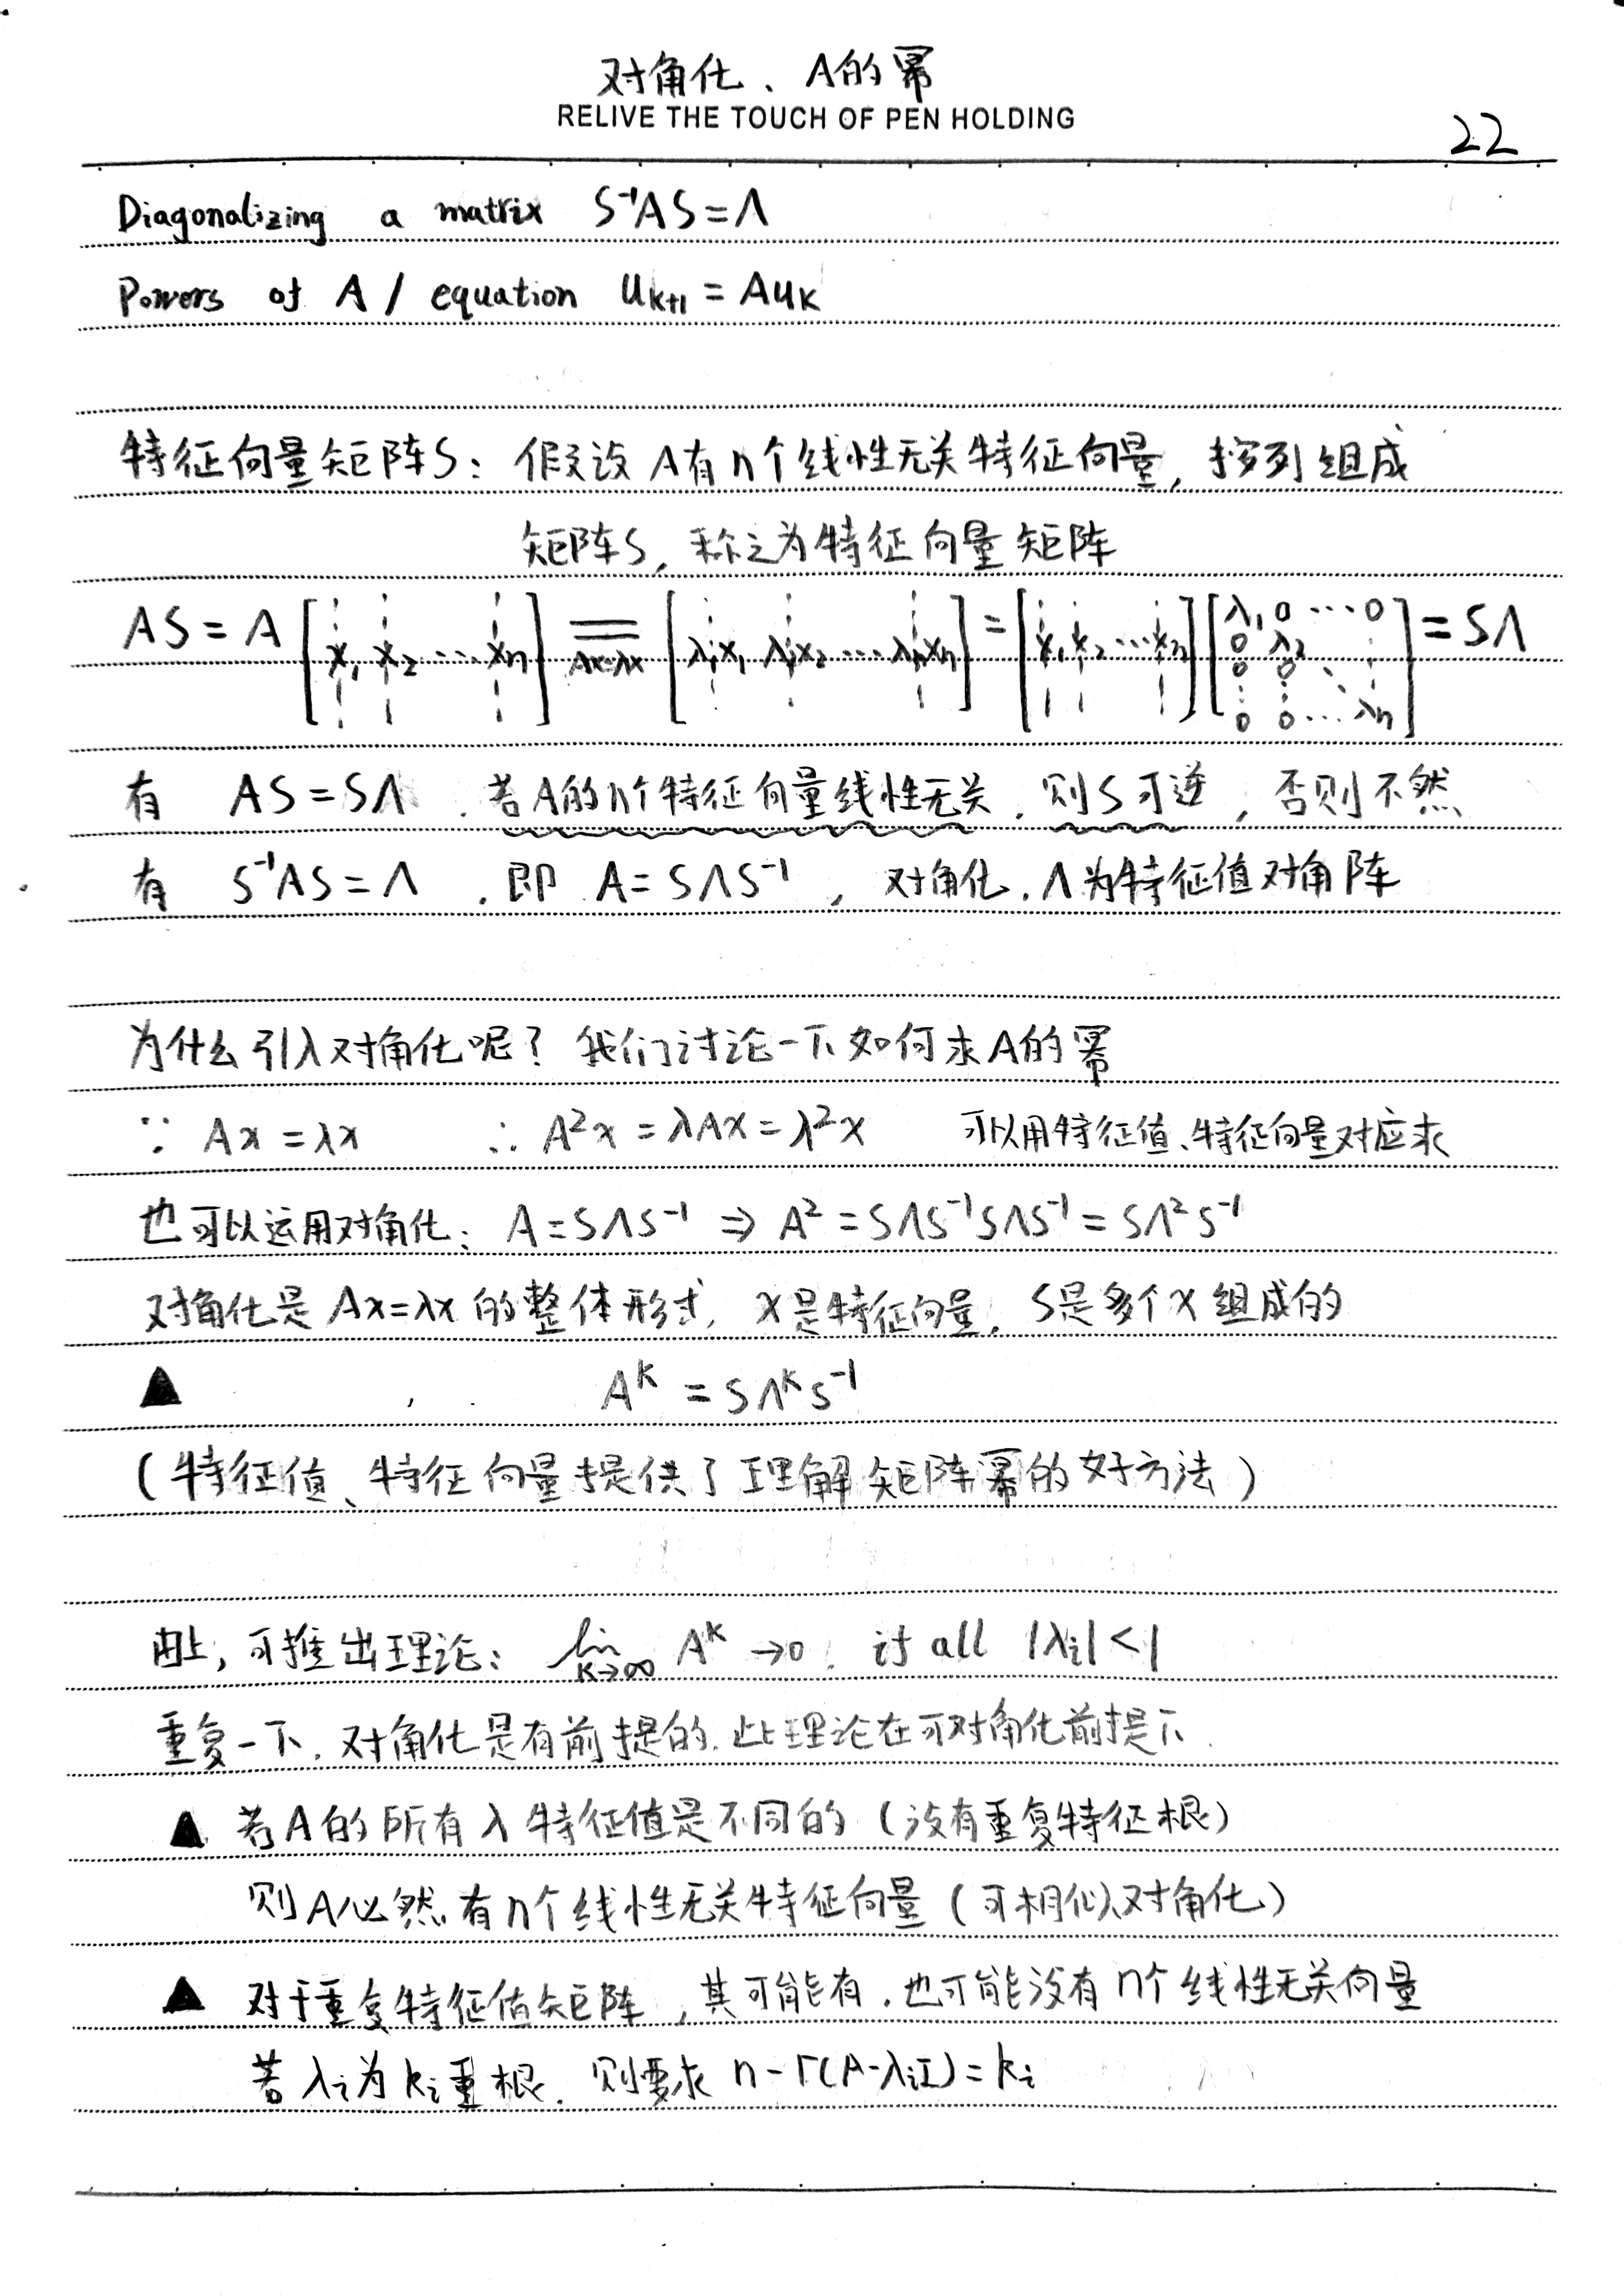 对角化、A的幂
RELIVE THE TOUCH OF PEN HOLDING
22
Diagonalizing a matrix S⁻¹AS=Λ
Powers of A / equation uₖ₊₁ = Auₖ
特征向量矩阵S: 假设A有n个线性无关特征向量, 按列组成
矩阵S, 称之为特征向量矩阵
AS = A [x₁ x₂ ⋯ xₙ] =(Ax=λx)= [λ₁x₁ λ₂x₂ ⋯ λₙxₙ] = [x₁ x₂ ⋯ xₙ] [λ₁ 0 ⋯ 0; 0 λ₂ ⋮; 0 0 ⋱ ⋮; ⋮ ⋮; 0 0 ⋯ λₙ] = SΛ
有 AS=SΛ. 若A的n个特征向量线性无关, 则S可逆, 否则不然
有 S⁻¹AS=Λ. 即 A=SΛS⁻¹, 对角化. Λ为特征值对角阵
为什么引入对角化呢? 我们讨论一下如何求A的幂
∵ Ax=λx ∴ A²x=λAx=λ²x 可以用特征值、特征向量对应求
也可以运用对角化: A=SΛS⁻¹ ⇒ A²=SΛS⁻¹SΛS⁻¹=SΛ²S⁻¹
对角化是Ax=λx的整体形式, x是特征向量, S是多个x组成的
▲ Aᵏ = SΛᵏS⁻¹
(特征值、特征向量提供了理解矩阵幂的好方法)
由上, 可推出理论: lim k→∞ Aᵏ →0. if all |λᵢ|<1
重复一下. 对角化是有前提的. 此理论在可对角化前提下.
▲ 若A的所有λ特征值是不同的 (没有重复特征根)
则A必然有n个线性无关特征向量 (可相似对角化)
▲ 对于重复特征值矩阵, 其可能有. 也可能没有n个线性无关向量
若λᵢ为kᵢ重根. 则要求 n-r(A-λᵢI)=kᵢ